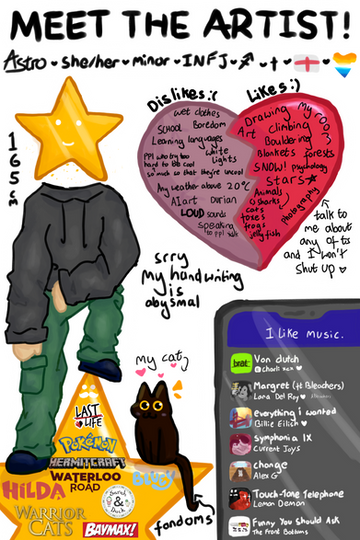 MEET THE ARTIST!
Astro • she/her • minor • INFJ • ♐ • † •
165cm
Dislikes:(
wet clothes
SCHOOL Boredom
Learning languages
PPl who try too
hard to be cool
so much so that they're uncool
white
lights
Any weather above 20°C
AI art Durian
LOUD sounds
speaking
to ppl
Likes:)
Drawing
my room
Art climbing
Bouldering
Blankets forests
SNOW! psychology
Stars★
Animals
sharks
cats
foxes
frogs
jellyfish
photography
talk to
me about
any of ts
and I won't
shut up ♥
srry
my handwriting
is
abysmal
my cat
LAST
LIFE
POKéMON
HERMITCRAFT
WATERLOO
ROAD
HiLDA
Sarah
& Duck
BLUEY
WARRIOR
CATS
BAYMAX!
fandoms
I like music.
brat
Von dutch
charli xcx ♥
Margret (ft Bleachers)
Lana Del Rey ♥
everything i wanted
Billie Eilish ♥
Symphonia IX
Current Joys
change
Alex G
Touch-Tone Telephone
Lemon Demon
Funny You Should Ask
The Front Bottoms